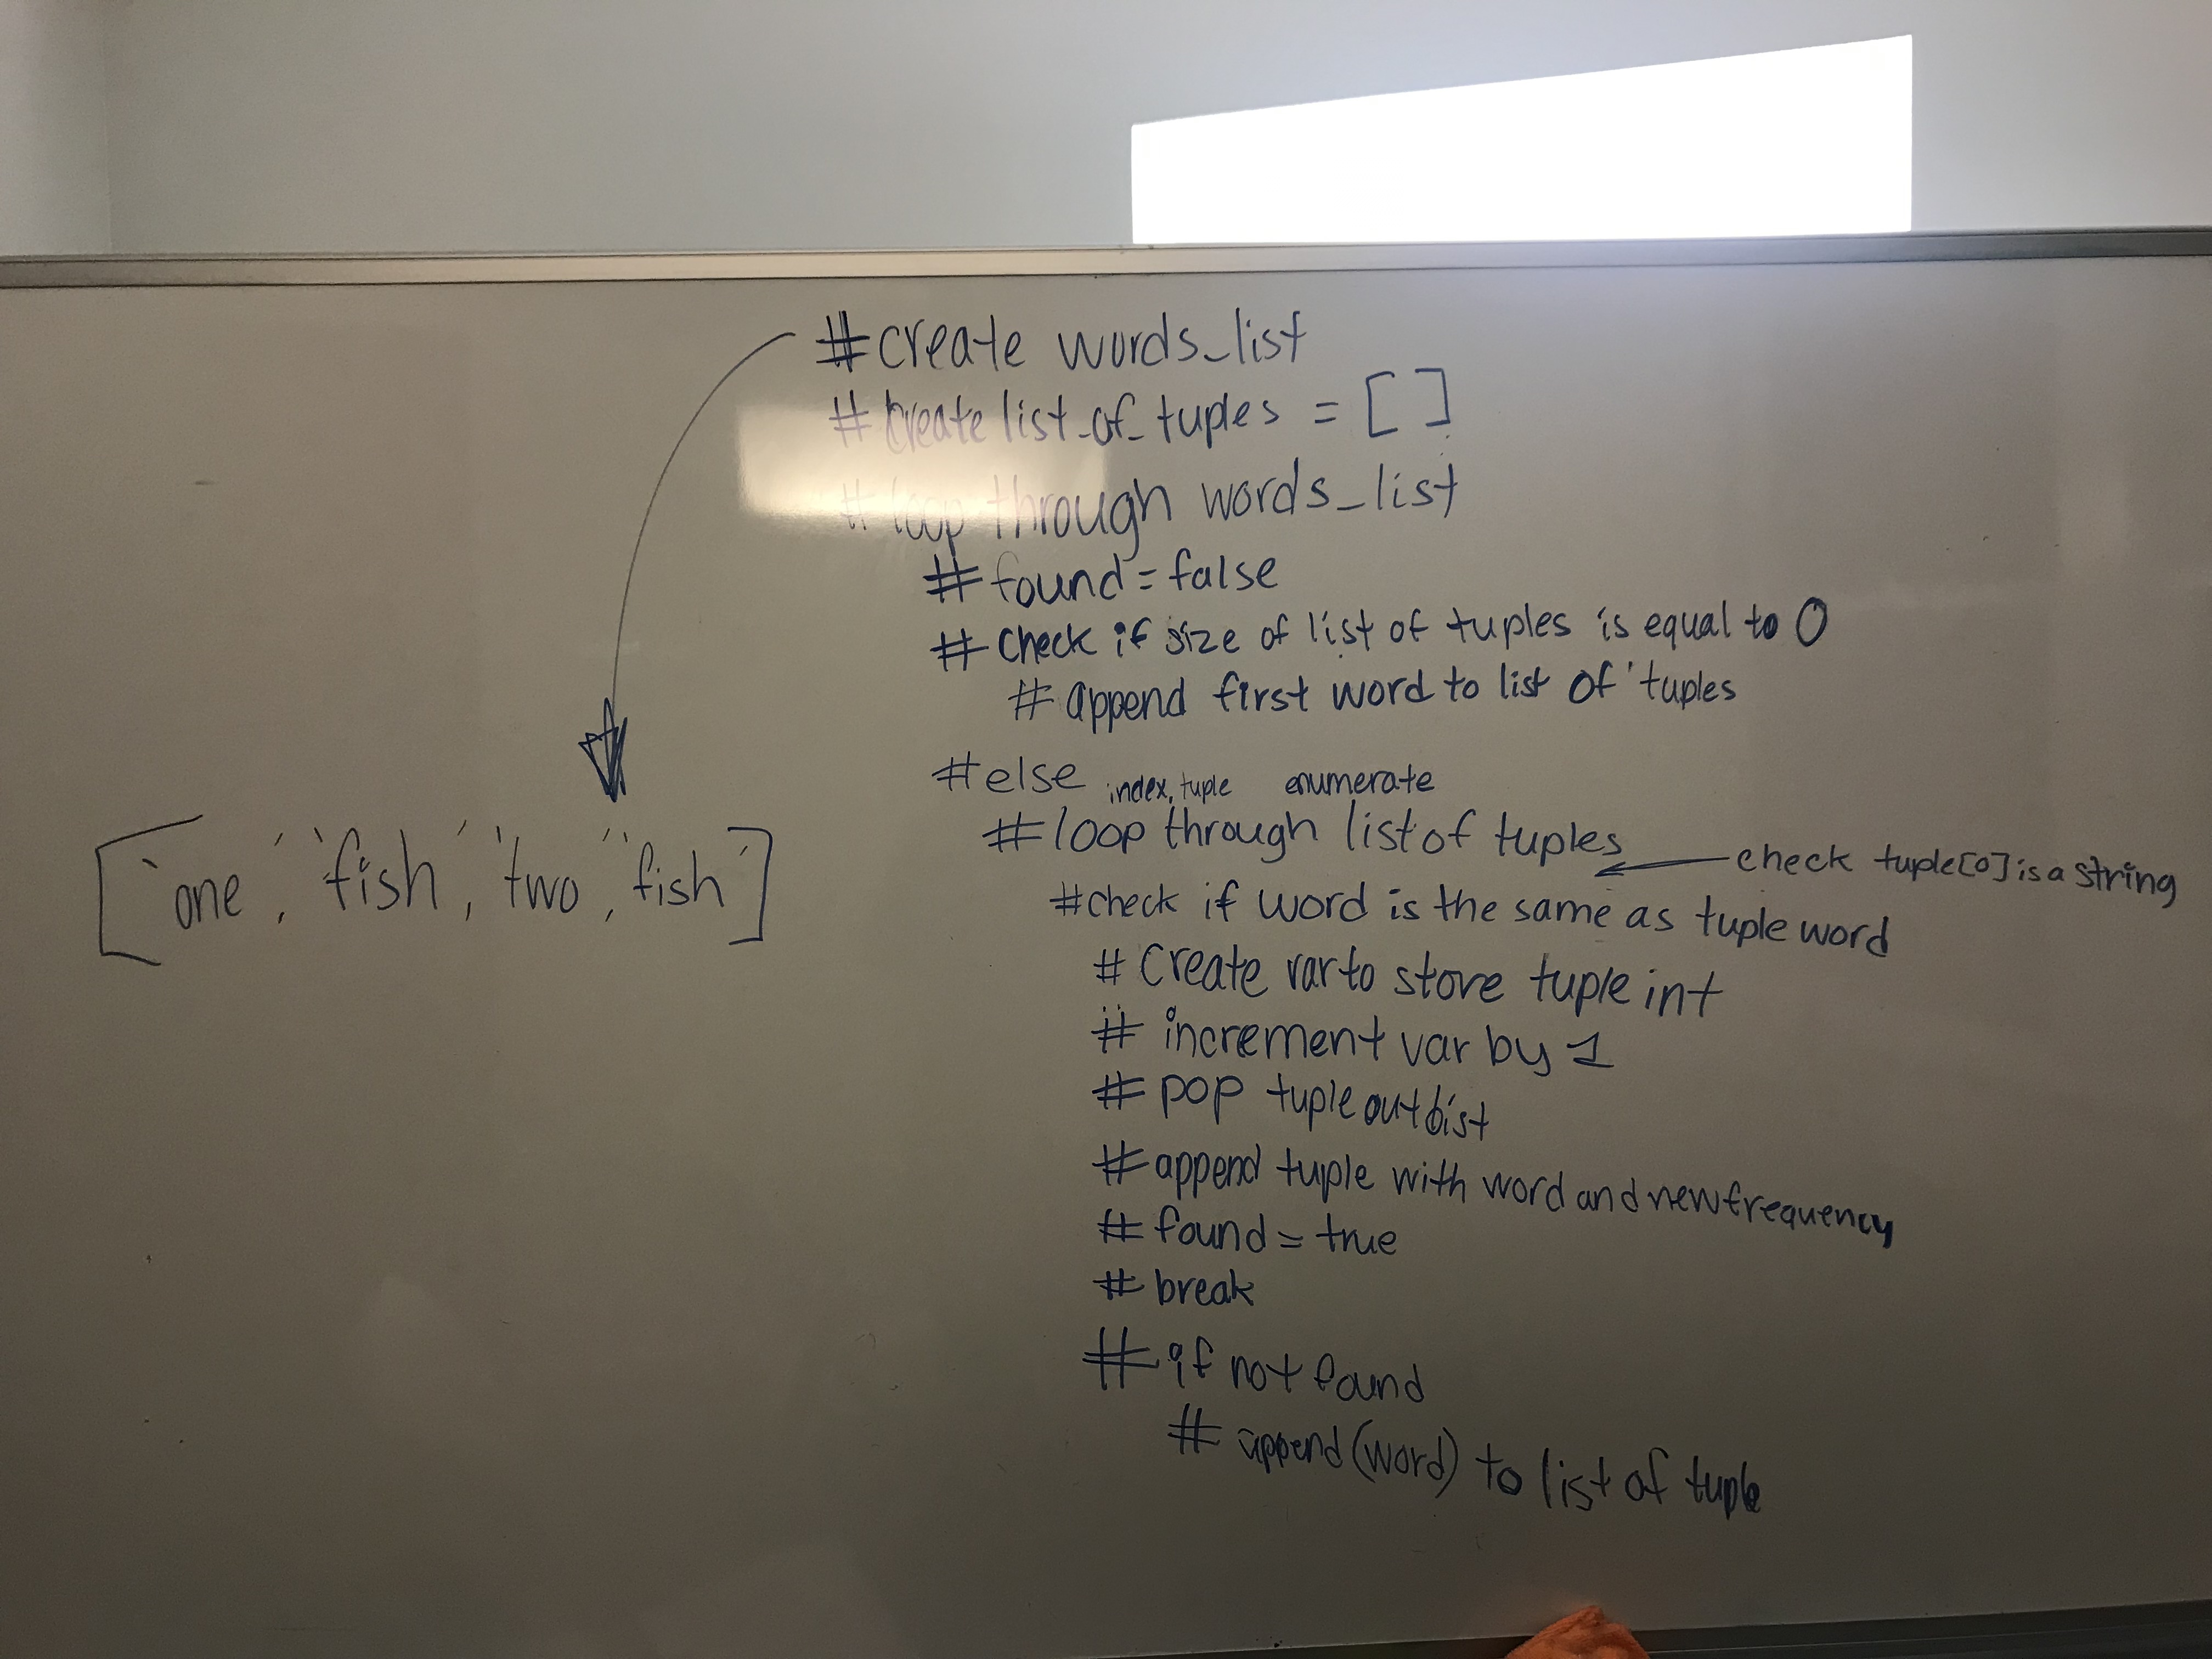 #create words_list
# create list_of_tuples = []
# loop through words_list
# found = false
# check if size of list of tuples is equal to 0
# append first word to list of tuples
#else index, tuple enumerate
#loop through list of tuples
check tuple[0] is a string
['one', 'fish', 'two', 'fish']
#check if word is the same as tuple word
# Create var to store tuple int
# increment var by 1
# pop tuple out
#append tuple with word and new frequency
# found = true
# break
# if not found
# append (word) to list of tuple